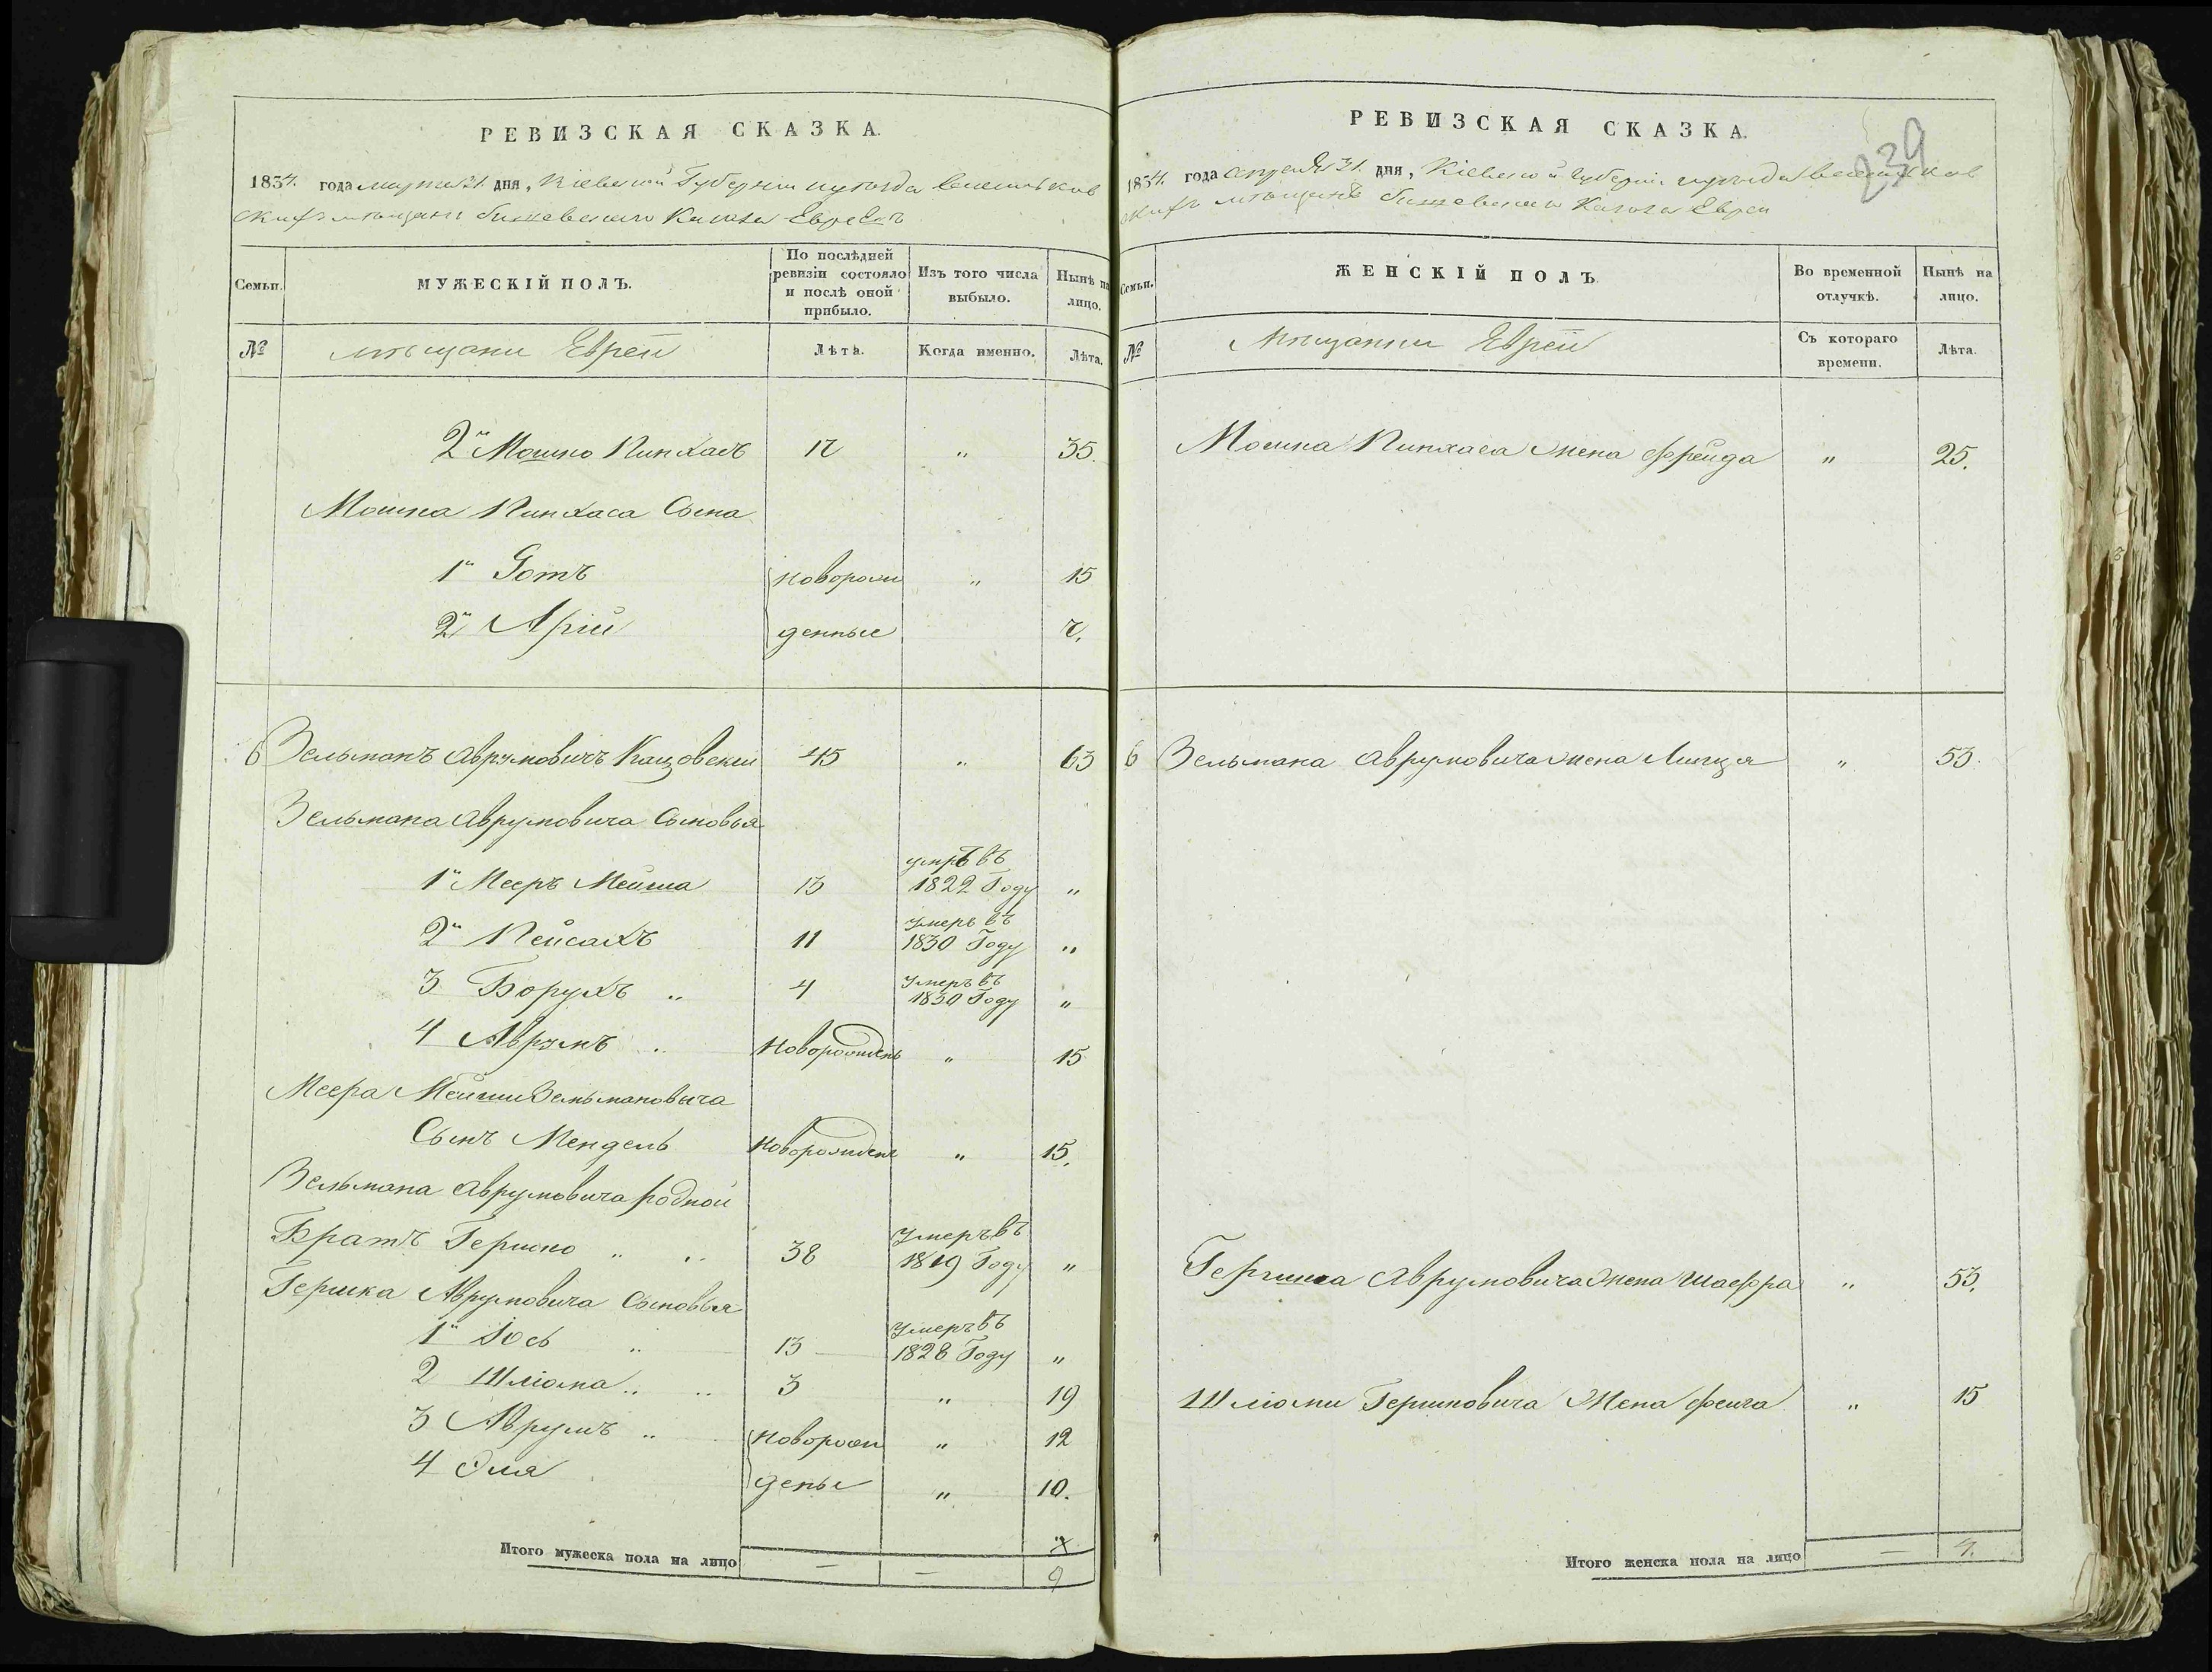 РЕВИЗСКАЯ СКАЗКА.
1834. года марта 31. дня, Кіевской Губерніи
мѣщанъ Кагала Евреевъ
Семьи.
МУЖЕСКІЙ ПОЛЪ.
По послѣдней ревизіи состояло и послѣ оной прибыло.
Изъ того числа выбыло.
Нынѣ на лицо.
№
мѣщани Евреи
Лѣта.
Когда именно.
Лѣта.
2й Мошко Пинхасъ 17 " 35.
Мошка Пинхаса Сына
1й Готъ новорож " 15
2й Арій денные 7.
6 Зельманъ Аврумовичъ Кацовскій 45 " 63
Зельмана Аврумовича Сыновья
1й Мееръ Мейша 13 умръ въ 1822 Году "
2й Пейсахъ 11 Умеръ въ 1830 Году "
3 Борухъ " 4 Умеръ въ 1830 Году "
4 Аврумъ " Новорожденъ " 15
Меера Мейши Зельмановича
Сынъ Мендель Новорожденъ " 15.
Зельмана Аврумовича родной
Братъ Гершко " " 38 Умеръ въ 1819 Году "
Гершка Аврумовича Сыновья
1й Іось " 13 Умеръ въ 1828 Году "
2 Шліома " " 3 " 19
3 Аврумъ " Новорож " 12
4 Эля дены " 10.
Итого мужеска пола на лицо — — 9
РЕВИЗСКАЯ СКАЗКА.
239
1834. года апреля 31. дня, Кіевской Губерніи
мѣщанъ Кагала Евреи
Семьи.
ЖЕНСКІЙ ПОЛЪ.
Во временной отлучкѣ.
Нынѣ на лицо.
№
Мѣщанки Евреи
Съ котораго времени.
Лѣта.
Мошка Пинхаса жена Фрейда " 25.
6 Зельмана Аврумовича жена " 53.
Гершка Аврумовича Жена Шаефра " 53.
Шліоми Гершковича Жена Феига " 15
Итого женска пола на лицо — 4.